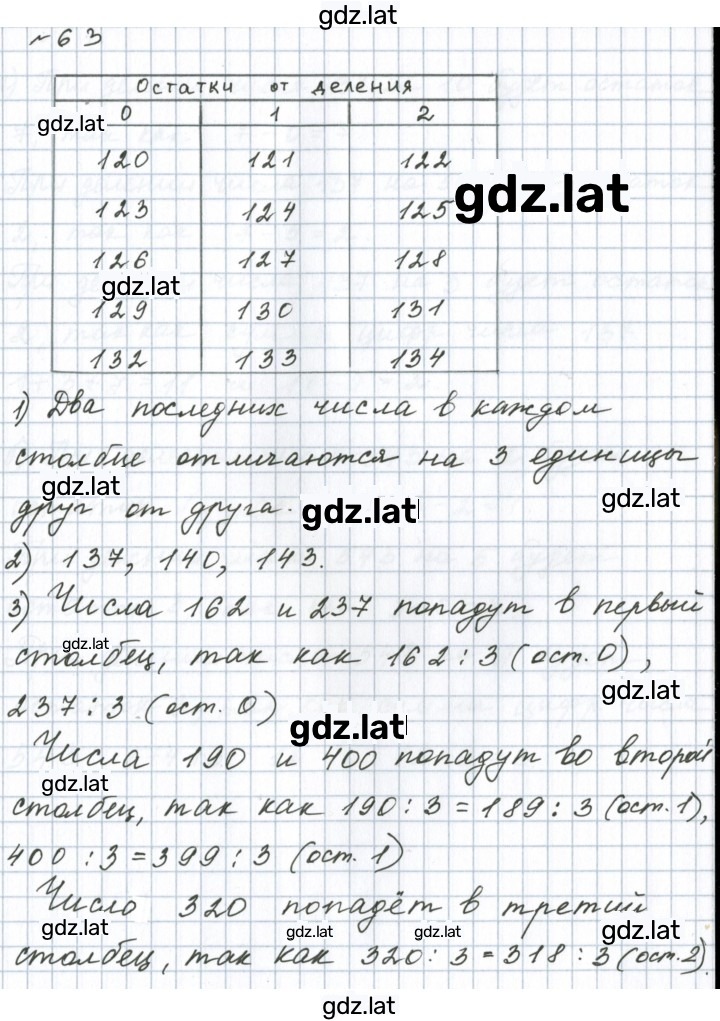 gdz.lat
№ 63
Остатки от деления
gdz.lat
0 1 2
120 121 122
gdz.lat
123 124 125
126 127 128
gdz.lat
129 130 131
132 133 134
1) Два последних числа в каждом
столбце отличаются на 3 единицы
gdz.lat gdz.lat
друг от друга.
gdz.lat
2) 137, 140, 143.
3) Числа 162 и 237 попадут в первый
gdz.lat
столбец, так как 162 : 3 (ост. 0),
gdz.lat
237 : 3 (ост. 0)
gdz.lat
Числа 190 и 400 попадут во второй
gdz.lat
столбец, так как 190 : 3 = 189 : 3 (ост. 1),
400 : 3 = 399 : 3 (ост. 1)
Число 320 попадёт в третий
gdz.lat gdz.lat gdz.lat gdz.lat
столбец, так как 320 : 3 = 318 : 3 (ост. 2).
gdz.lat